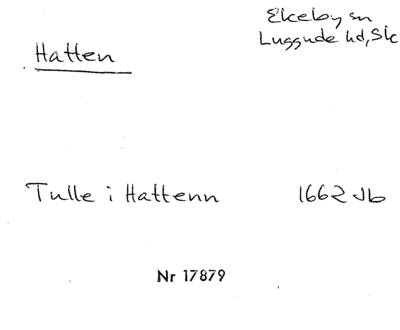 Hatten
Ekeby sn
Luggude hd, Sk
Tulle i Hattenn 1662 Jb
Nr 17879